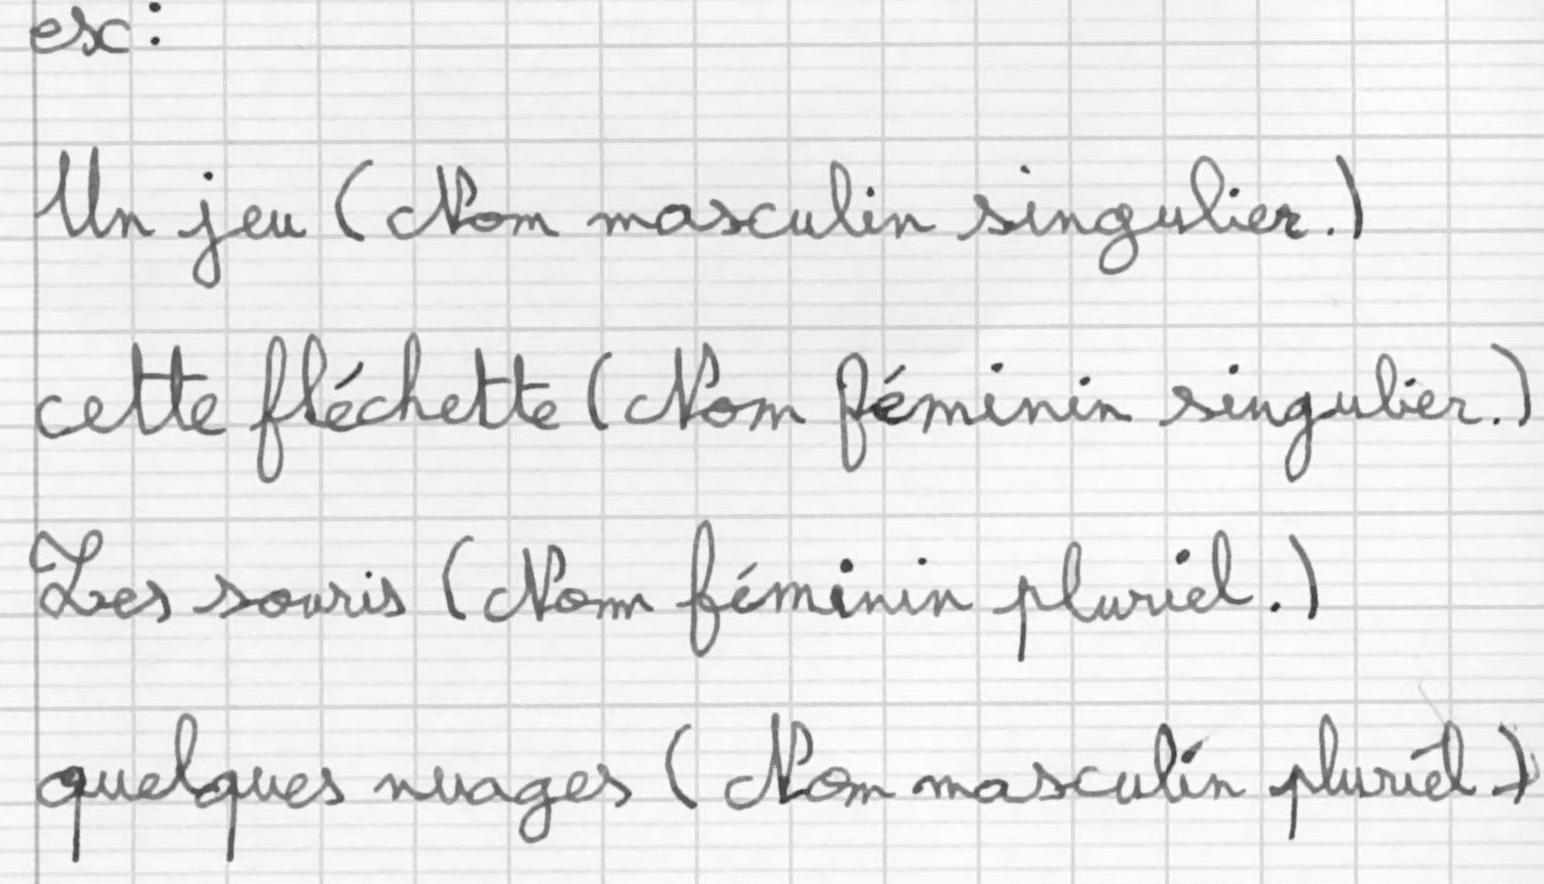 ex:
Un jeu (Nom masculin singulier.)
cette fléchette (Nom féminin singulier.)
Les souris (Nom féminin pluriel.)
quelques nuages (Nom masculin pluriel.)